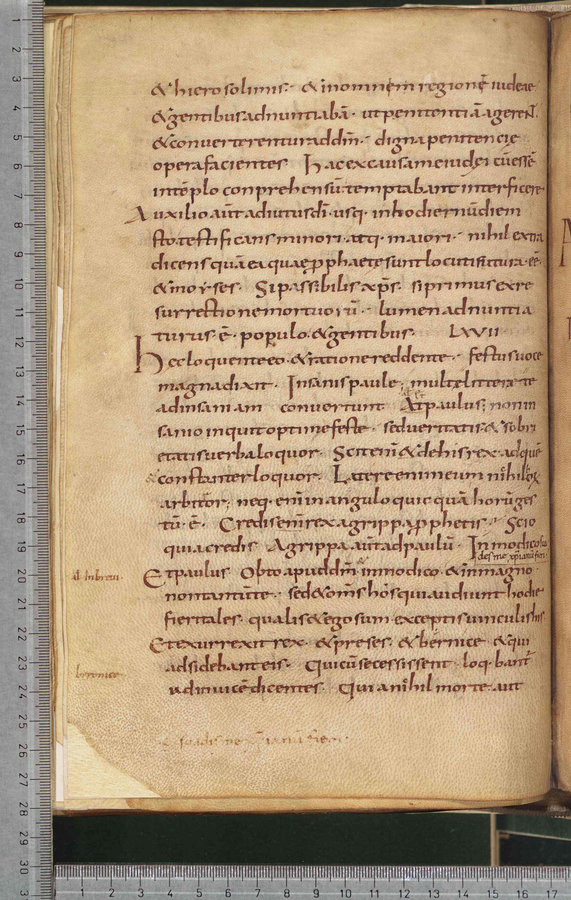 & hierosolimis · & in omnem regionē iudeae
& gentibus adnuntiabā · ut penitentiā agerent
& converterentur ad dm̄ · digna penitencie
opera facientes Hac ex causa me iudei cū essē
in tēplo conprehensū temptabant interficere
Auxilio aūt adiutus dī · usq · in hodiernū diem
sto testificans minori · atq · maiori · nihil extra
dicens quā ea quae prophaete sunt locuti futura · eē ·
& moyses · Si passibilis xp̄s · si primus ex re
surrectione mortuorū · lumen adnuntia
turus · ē · populo · & gentibus · LXVII
Hec loquente eo · & ratione reddente · festus voce
magna dixit · Insanis paule ; multe littere te
ad insaniam convertunt At paulus ; non in
sanio inquit optime feste · sed veritatis · & sobri
etatis verba loquor · Scit enī & de his rex · ad quē
& constanter loquor · Latere enim eum nihil horū
arbitror ; neq · enī in angulo quicquā horū ges
tū · ē · Credis enī rex agrippa prophetis · Scio
quia credis Agrippa aūt ad paulū · In modico sua
des me xpianū fieri ·
Et paulus Obto apud dm̄ in modico · & in magno ·
non tantū te · sed & om̄s hos qui audiunt hodie
fieri tales · qualis & ego sum · exceptis vinculis his
Et exurrexit rex · & preses · & bernice · & qui
adsidebant eis · Qui cū secessissent · loq̄bantr
ad invicē dicentes · Quia nihil morte · aut
bernice
suadis me xpianū fieri ·